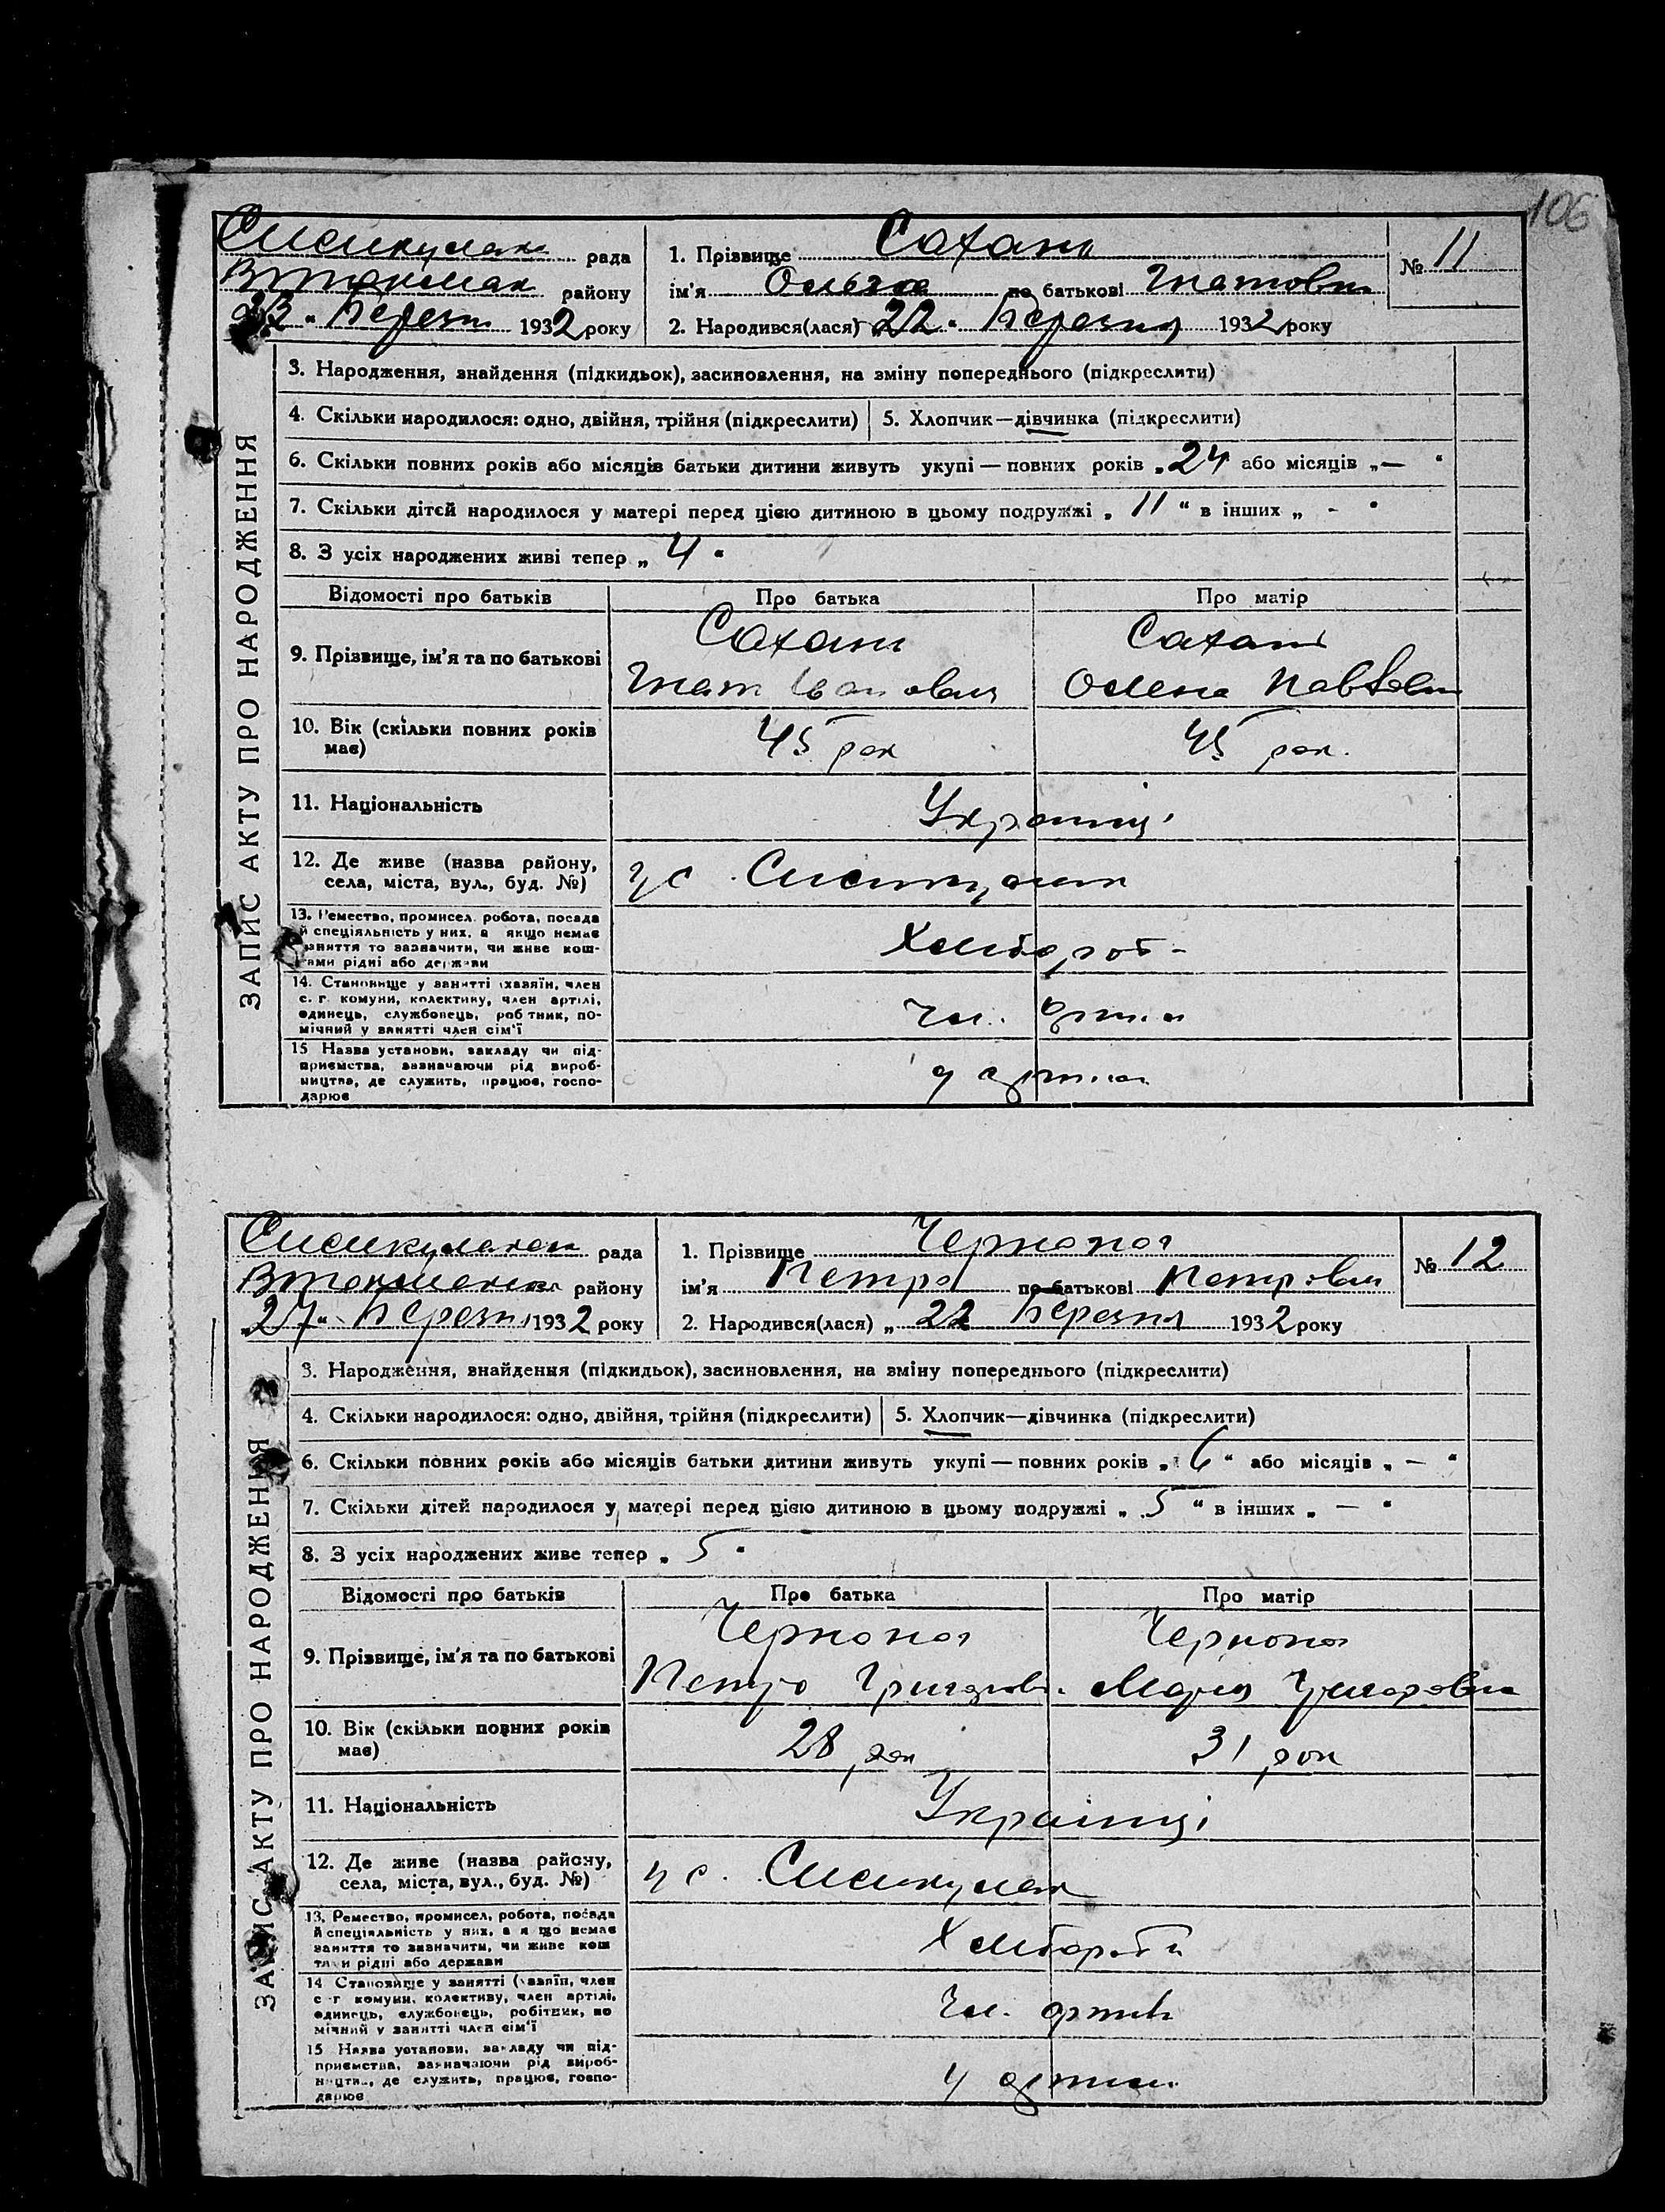 106
рада
району
23 " Березн 1932 року
1. Прізвище Сахань
ім'я Ольга по батькові Гнатовн
2. Народився(лася) „ 22 " Березня 1932 року
№ 11
ЗАПИС АКТУ ПРО НАРОДЖЕННЯ
3. Народження, знайдення (підкидьок), засиновлення, на зміну попереднього (підкреслити)
4. Скільки народилося: одно, двійня, трійня (підкреслити) 5. Хлопчик—дівчинка (підкреслити)
6. Скільки повних років або місяців батьки дитини живуть укупі — повних років „ 24 або місяців „ — "
7. Скільки дітей народилося у матері перед цією дитиною в цьому подружжі „ 11 " в інших „ - "
8. З усіх народжених живі тепер „ 4 "
Відомості про батьків Про батька Про матір
9. Прізвище, ім'я та по батькові
Сахань Сахань
Гнат Іванович Олена
10. Вік (скільки повних років має) 45 рок 45 рок.
11. Національність Українці
12. Де живе (назва району, села, міста, вул., буд. №) у с.
13. Ремество, промисел, робота, посада й спеціяльність у них, а якщо немає заняття то зазначити, чи живе коштами рідні або держави Хлібороб
14. Становище у занятті (хазяїн, член с. г. комуни, колективу, член артілі, одинець, службовець, робітник, помічний у занятті член сім'ї Чл. артіл
15 Назва установи, закладу чи підприємства, зазначаючи рід виробництва, де служить, працює, господарює у артіл
рада
району
„ 27 " Березн 1932 року
1. Прізвище Чорноног
ім'я Петро по батькові Петрович
2. Народився(лася) „ 22 Березня 1932 року
№ 12
ЗАПИС АКТУ ПРО НАРОДЖЕННЯ
3. Народження, знайдення (підкидьок), засиновлення, на зміну попереднього (підкреслити)
4. Скільки народилося: одно, двійня, трійня (підкреслити) 5. Хлопчик—дівчинка (підкреслити)
6. Скільки повних років або місяців батьки дитини живуть укупі — повних років „ 6 " або місяців „ — "
7. Скільки дітей народилося у матері перед цією дитиною в цьому подружжі „ 5 " в інших „ — "
8. З усіх народжених живе тепер „ 5 "
Відомості про батьків Про батька Про матір
9. Прізвище, ім'я та по батькові
Петро Марія
10. Вік (скільки повних років має) 28 рок 31 рок
11. Національність Українці
12. Де живе (назва району, села, міста, вул., буд. №) у с.
13. Ремество, промисел, робота, посада й спеціяльність у них, а якщо немає заняття то зазначити, чи живе коштами рідні або держави Хлібороби
14 Становище у занятті (хазяїн, член с.-г. комуни, колективу, член артілі, одинець, службовець, робітник, помічний у занятті член сім'ї Чл. артіл
15 Назва установи, закладу чи підприємства, зазначаючи рід виробництва, де служить, працює, господарює у артіл